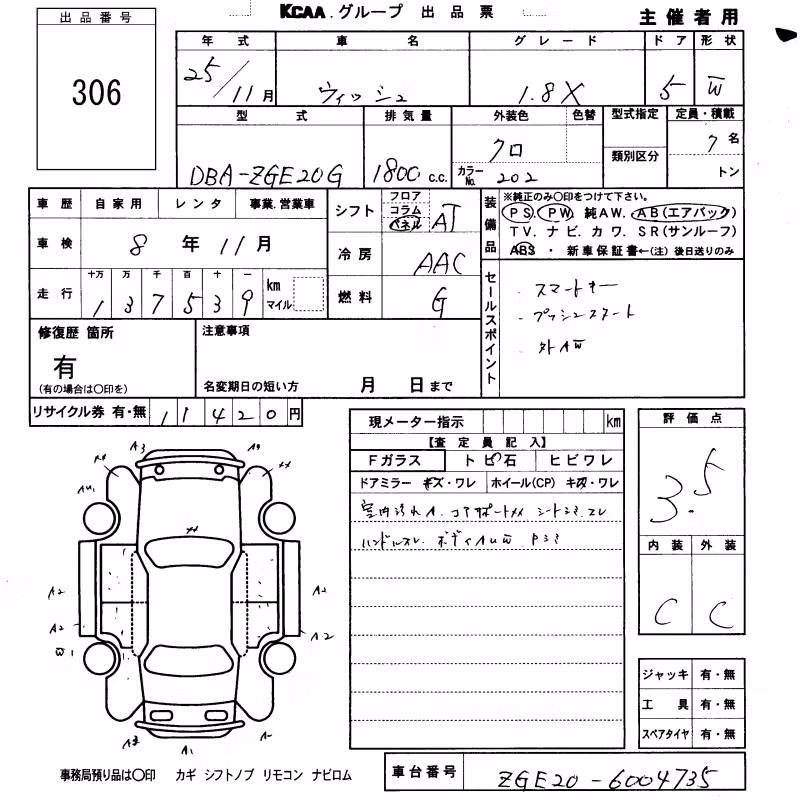 KCAA.グループ 出品票
主催者用
出品番号
306
年式 車名 グレード ドア 形状
25/11月 ウィッシュ 1.8X 5 W
型式 排気量 外装色 色替 型式指定 定員・積載
DBA-ZGE20G 1800 c.c. クロ 類別区分 7名
カラーNo. 202 トン
車歴 自家用 レンタ 事業.営業車
シフト フロア コラム パネル AT
車検 8年11月
冷房 AAC
走行 十万 万 千 百 十 一
137539 km マイル
燃料 G
装備品 ※純正のみ○印をつけて下さい。
PS. PW 純AW. AB(エアバック)
TV. ナビ. カワ. SR(サンルーフ)
ABS ・ 新車保証書←(注) 後日送りのみ
セールスポイント
・スマートキー
・プッシュスタート
・外AW
修復歴 箇所 注意事項
有
(有の場合は○印を) 名変期日の短い方 月 日まで
リサイクル券 有・無 11420円
現メーター指示 km
【査定員記入】
Fガラス トビ石 ヒビワレ
ドアミラー キズ・ワレ ホイール(CP) キズ・ワレ
室内汚れA. コアサポートXX シートシミ.スレ
ハンドルスレ. ボディAUW Pシミ
評価点
3.5
内装 外装
C C
ジャッキ 有・無
工具 有・無
スペアタイヤ 有・無
A3 A9
XX XX
AU1
XX
A2 A2
A2 A-2
W1
A1 A-
事務局預り品は○印 カギ シフトノブ リモコン ナビロム
車台番号 ZGE20-6004735